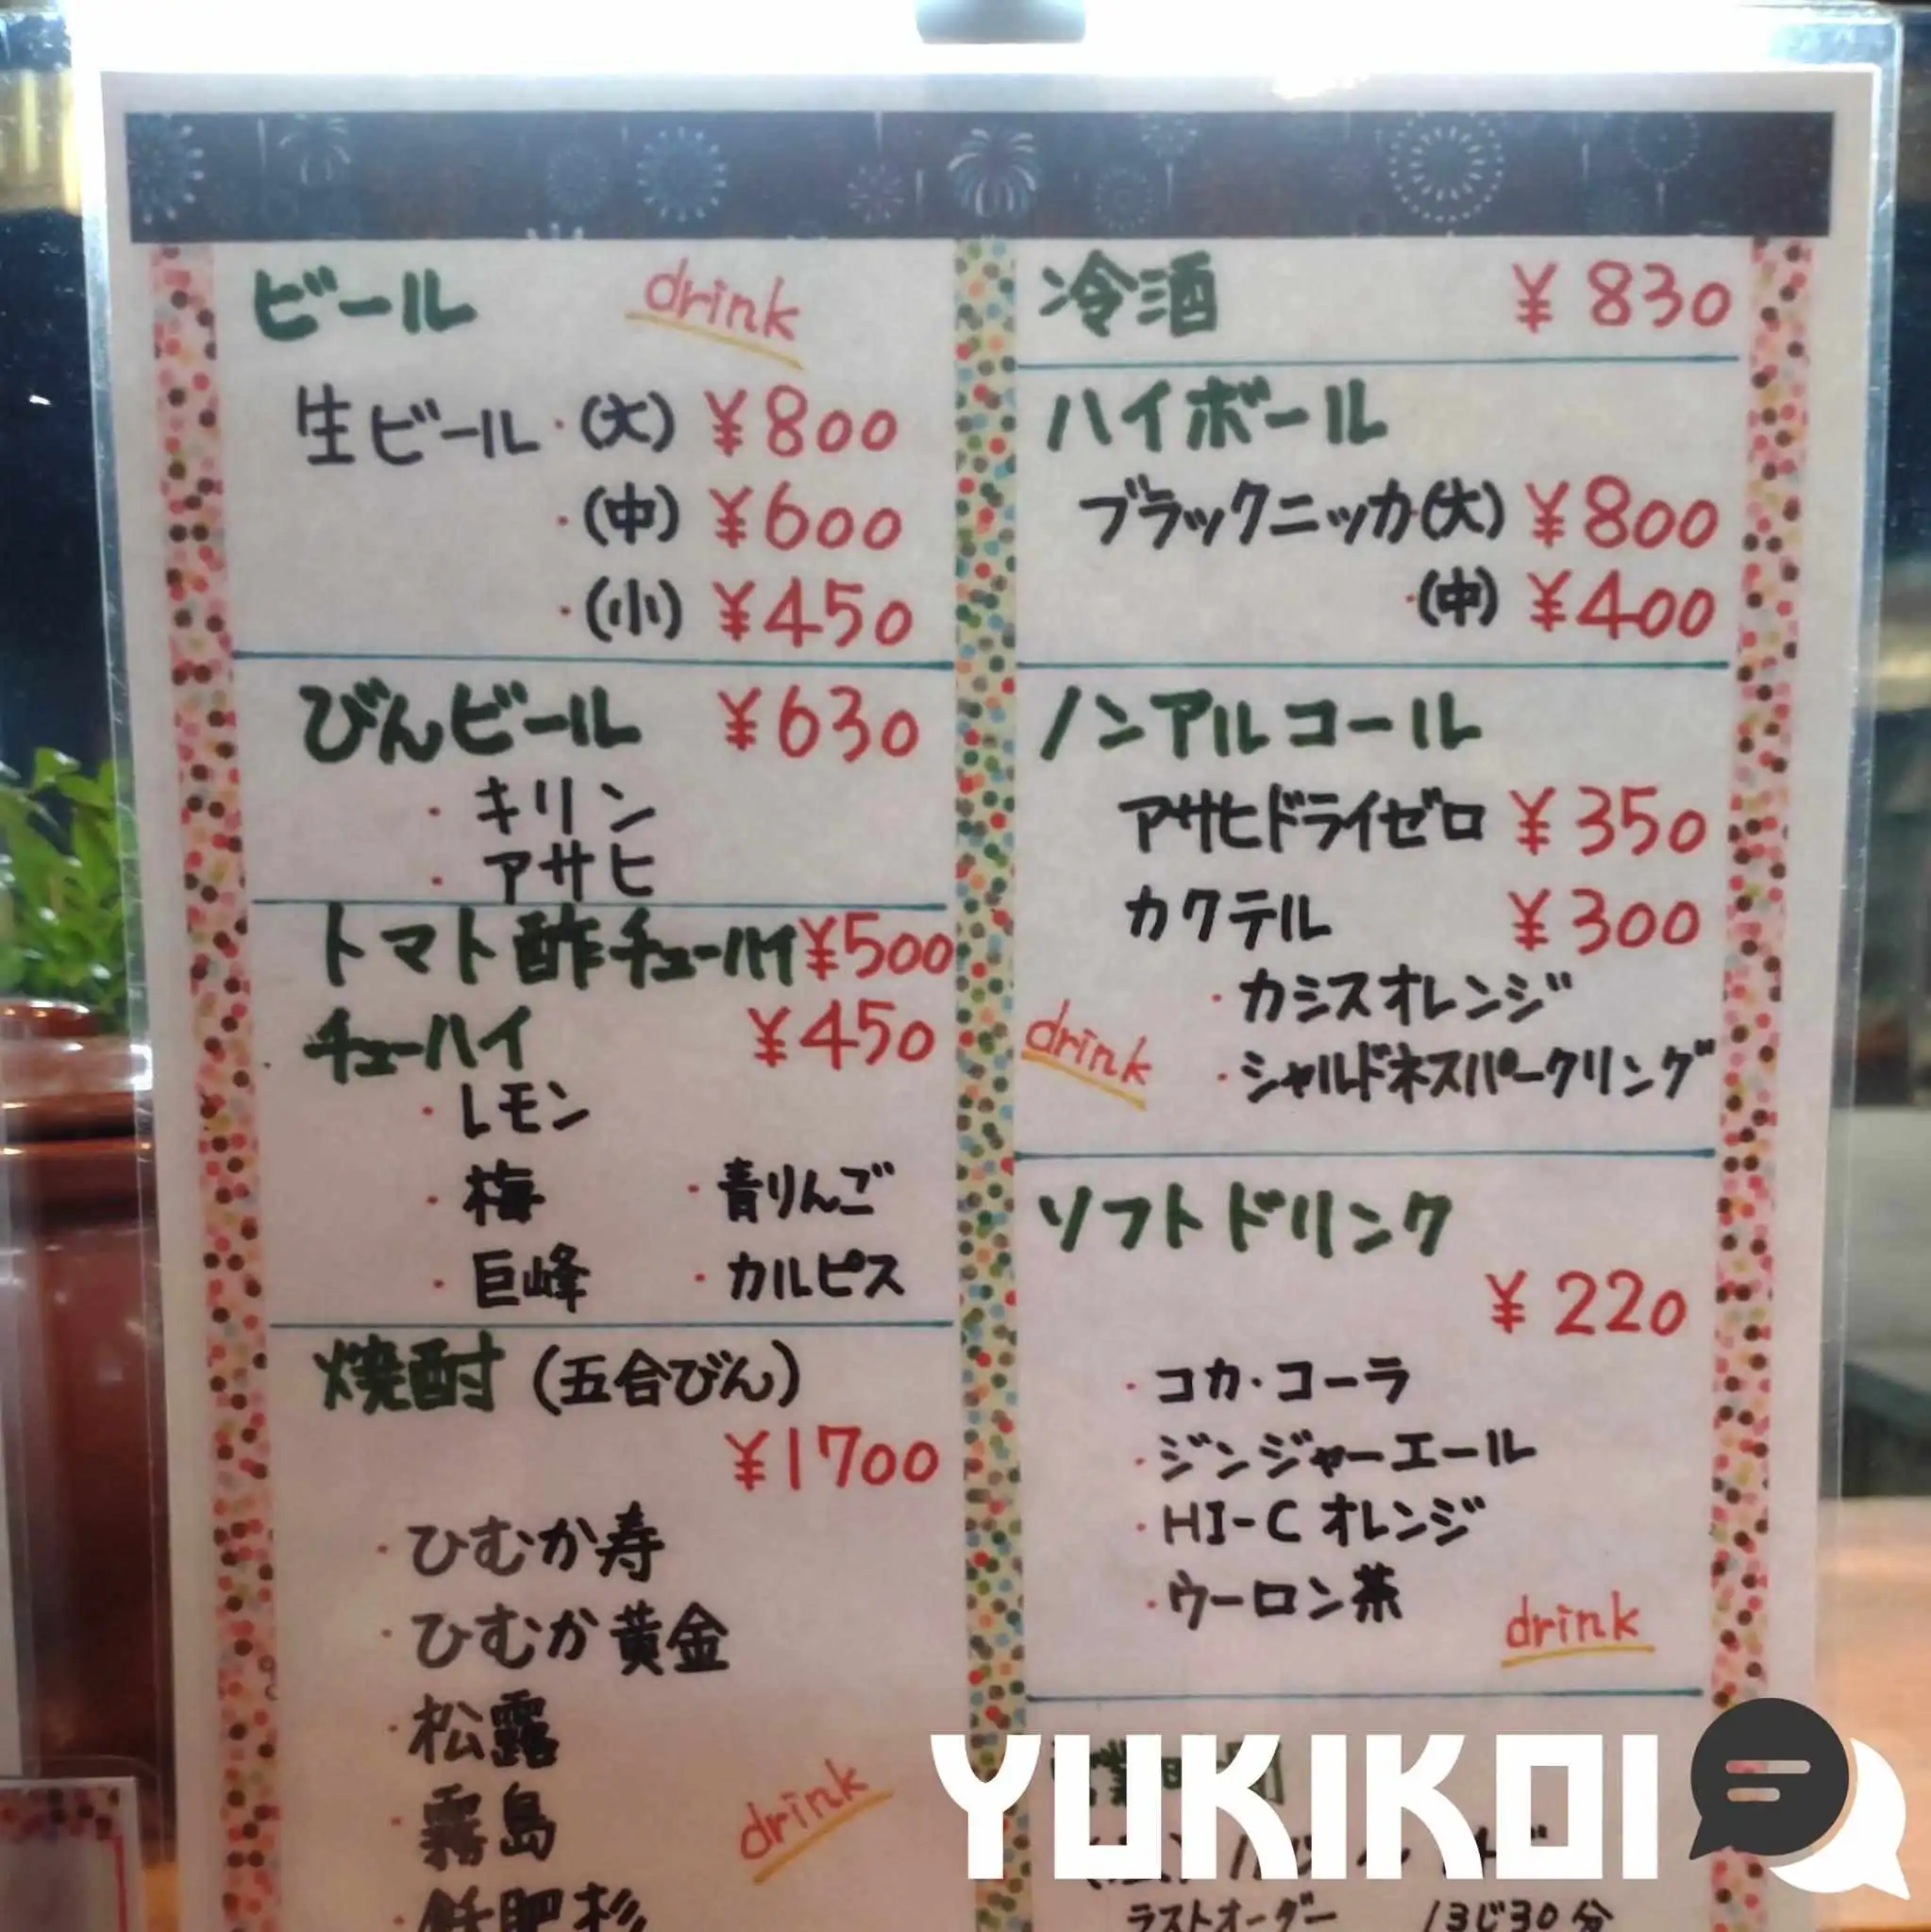 ビール drink
生ビール・(大) ¥800
・(中) ¥600
・(小) ¥450
びんビール ¥630
・キリン
・アサヒ
トマト酢チューハイ ¥500
チューハイ ¥450
・レモン
・梅 ・青りんご
・巨峰 ・カルピス
焼酎 (五合びん)
¥1700
・ひむか寿
・ひむか黄金
・松露
・霧島
drink
・飫肥杉
冷酒 ¥830
ハイボール
ブラックニッカ(大) ¥800
・(中) ¥400
ノンアルコール
アサヒドライゼロ ¥350
カクテル ¥300
・カシスオレンジ
drink
・シャルドネスパークリング
ソフトドリンク
¥220
・コカ・コーラ
・ジンジャーエール
・HI-C オレンジ
・ウーロン茶
drink
ラストオーダー 13じ30分
YUKIKOI